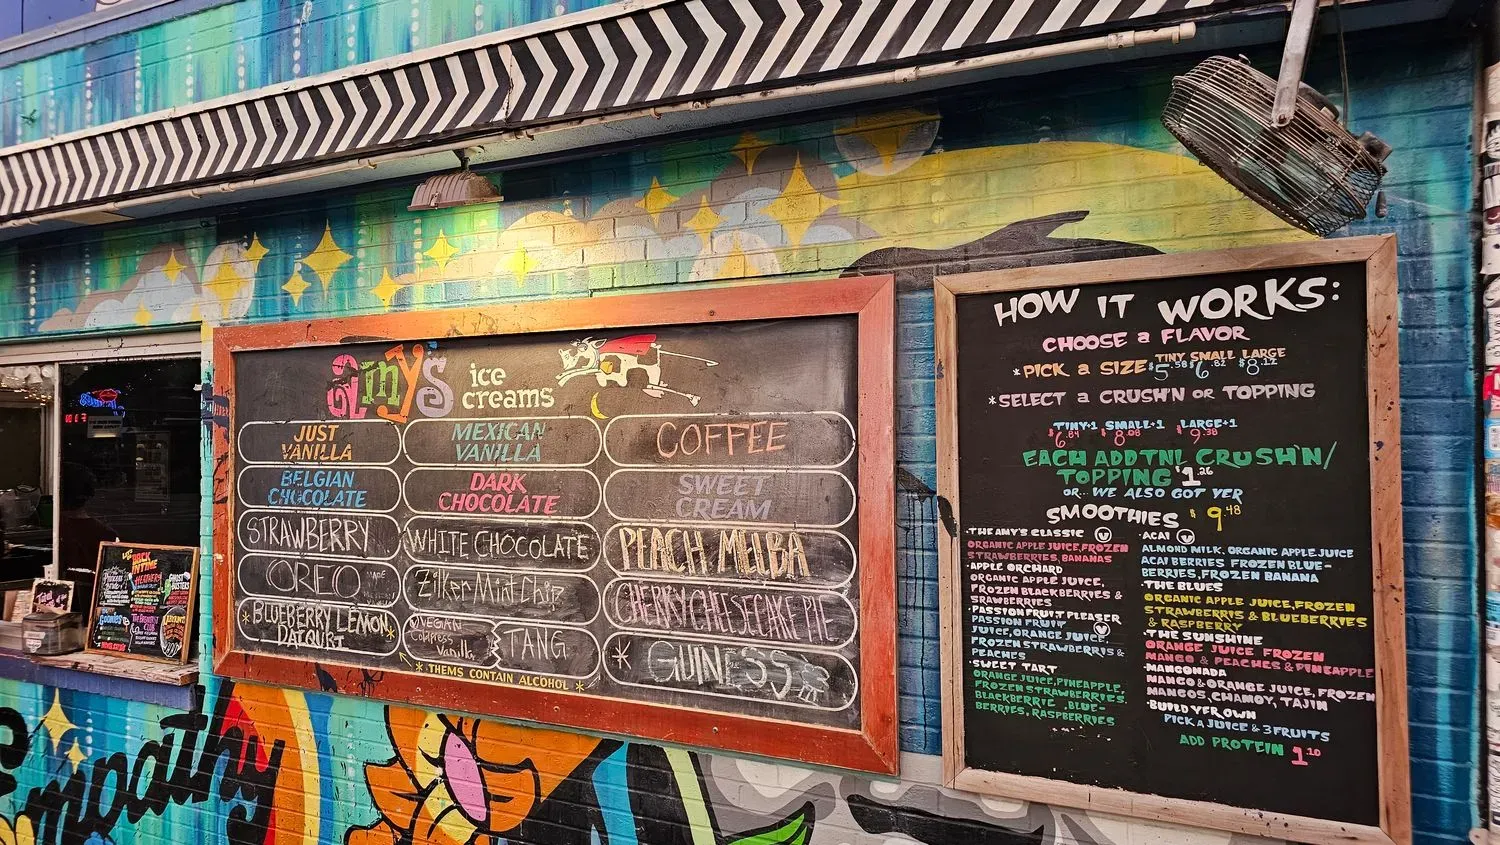 Amys
ice
creams
JUST
VANILLA
MEXICAN
VANILLA
COFFEE
BELGIAN
CHOCOLATE
DARK
CHOCOLATE
SWEET
CREAM
STRAWBERRY
WHITE CHOCOLATE
PEACH MELBA
OREO
Zilker Mint Chip
CHERRY CHEESECAKE PIE
*BLUEBERRY LEMON
DAIQUIRI*
VEGAN
Vanilla
TANG
* GUINESSS
* THEMS CONTAIN ALCOHOL *
HOW IT WORKS:
CHOOSE a FLAVOR
*PICK a SIZE
TINY SMALL LARGE
$5.58 $6.82 $8.12
*SELECT a CRUSH'N OR TOPPING
TINY+1 SMALL+1 LARGE+1
$6.84 $8.08 $9.38
EACH ADDTNL CRUSH'N/
TOPPING $1.26
OR... WE ALSO GOT YER
SMOOTHIES $9.48
·THE AMY'S CLASSIC V
ORGANIC APPLE JUICE, FROZEN
STRAWBERRIES, BANANAS
·APPLE ORCHARD
ORGANIC APPLE JUICE,
FROZEN BLACKBERRIES &
SRAWBERRIES
·PASSION FRUIT PLEASER
PASSION FRUIT V
JUICE, ORANGE JUICE,
FROZEN STRAWBERRIS &
PEACHES
·SWEET TART
ORANGE JUICE, PINEAPPLE,
FROZEN STRAWBERRIES.
BLACKBERRIE, BLUE-
BERRIES, RASPBERRIES
·ACAI V
ALMOND MILK, ORGANIC APPLE JUICE
ACAI BERRIES FROZEN BLUE-
BERRIES, FROZEN BANANA
·THE BLUES
ORGANIC APPLE JUICE, FROZEN
STRAWBERRIS & BLUEBERRIES
& RASPBERRY
·THE SUNSHINE
ORANGE JUICE FROZEN
MANGO & PEACHES & PINEAPPLE
·MANGONADA
MANGO & ORANGE JUICE, FROZEN
MANGOS, CHAMOY, TAJIN
·BUILD YER OWN
PICK A JUICE & 3 FRUITS
ADD PROTEIN 1.10
Empathy